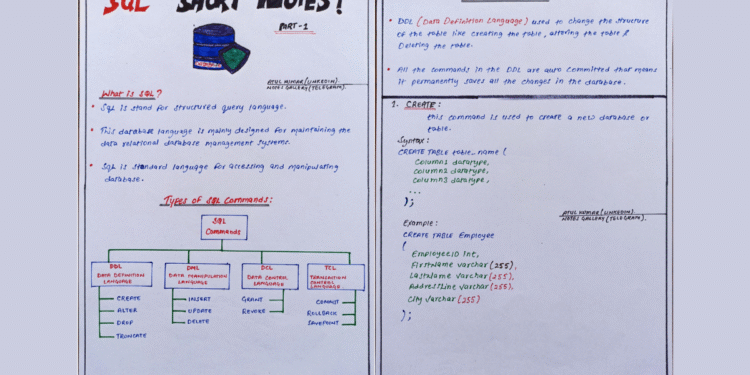 SQL SHORT NOTES!
PART-1
ATUL KUMAR (LINKEDIN).
NOTES GALLERY (TELEGRAM).
What is SQL?
• SQL is stand for structured query language.
• This database language is mainly designed for maintaining the
data relational database management systems.
• SQL is standard language for accessing and manipulating
database.
Types of SQL Commands:
SQL
Commands
DDL
DATA DEFINITION
LANGUAGE
CREATE
ALTER
DROP
TRUNCATE
DML
DATA MANIPULATION
LANGUAGE
INSERT
UPDATE
DELETE
DCL
DATA CONTROL
LANGUAGE
GRANT
REVOKE
TCL
TRANSACTION
CONTROL
LANGUAGE
COMMIT
ROLLBACK
SAVEPOINT
• DDL (Data Definition Language) used to change the structure
of the table like creating the table, altering the table &
Deleting the table.
• All the commands in the DDL are auto committed that means
it permanently saves all the changes in the database.
1. CREATE:
this command is used to create a new database or
table.
Syntax:
CREATE TABLE table_name (
Column1 datatype,
Column2 datatype,
Column3 datatype,
...
);
ATUL KUMAR (LINKEDIN).
NOTES GALLERY (TELEGRAM).
Example:
CREATE TABLE Employee
(
EmployeeID int,
FirstName varchar (255),
LastName varchar (255),
AddressLine varchar (255),
City varchar (255)
);